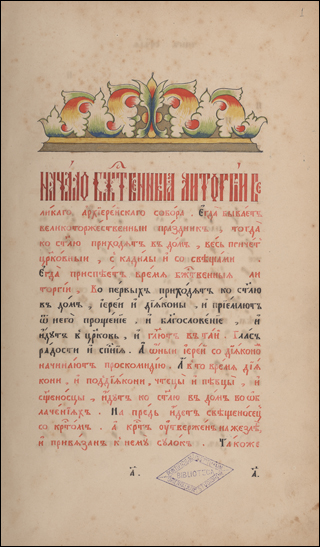 1
НАЧАЛО БЖ҃ТВЕННИЦА ЛИТОРГИИ ВЕ
ликаго архїерейскаго собора . Егда бываетъ
великоторжественныи праздникъ тогда
ко ст҃лю приходятъ в домъ , весь причетъ
церковныи , с кадилы и со свѣщами
Егда приспѣетъ время бжⷭ҇твенныя ли
торгїи . Во первыхъ приходятъ ко ст҃лю
въ домъ , їереи и дїяконы . и прїемлютъ
ѿ него прощенїе . и благословенїе , и
идутъ к црковь , и гл҃ютъ в таи Гласъ
радости и сп҃нїя . А їереи со дїяконо
начинаютъ проскомидию . А в то время дїя
кони и поддїякони , чтецы и пѣвцы , и
свѣщеносцы , идутъ ко ст҃лю въ домъ во об
лаченїяхъ . На предь идетъ свѣщеносец
со крⷭ҇томъ . а крⷭ҇тъ утверженъ на жезлѣ
и привязан к нему сулокъ . Такоже
а҃ . а҃ .
БИБЛИОТЕКА